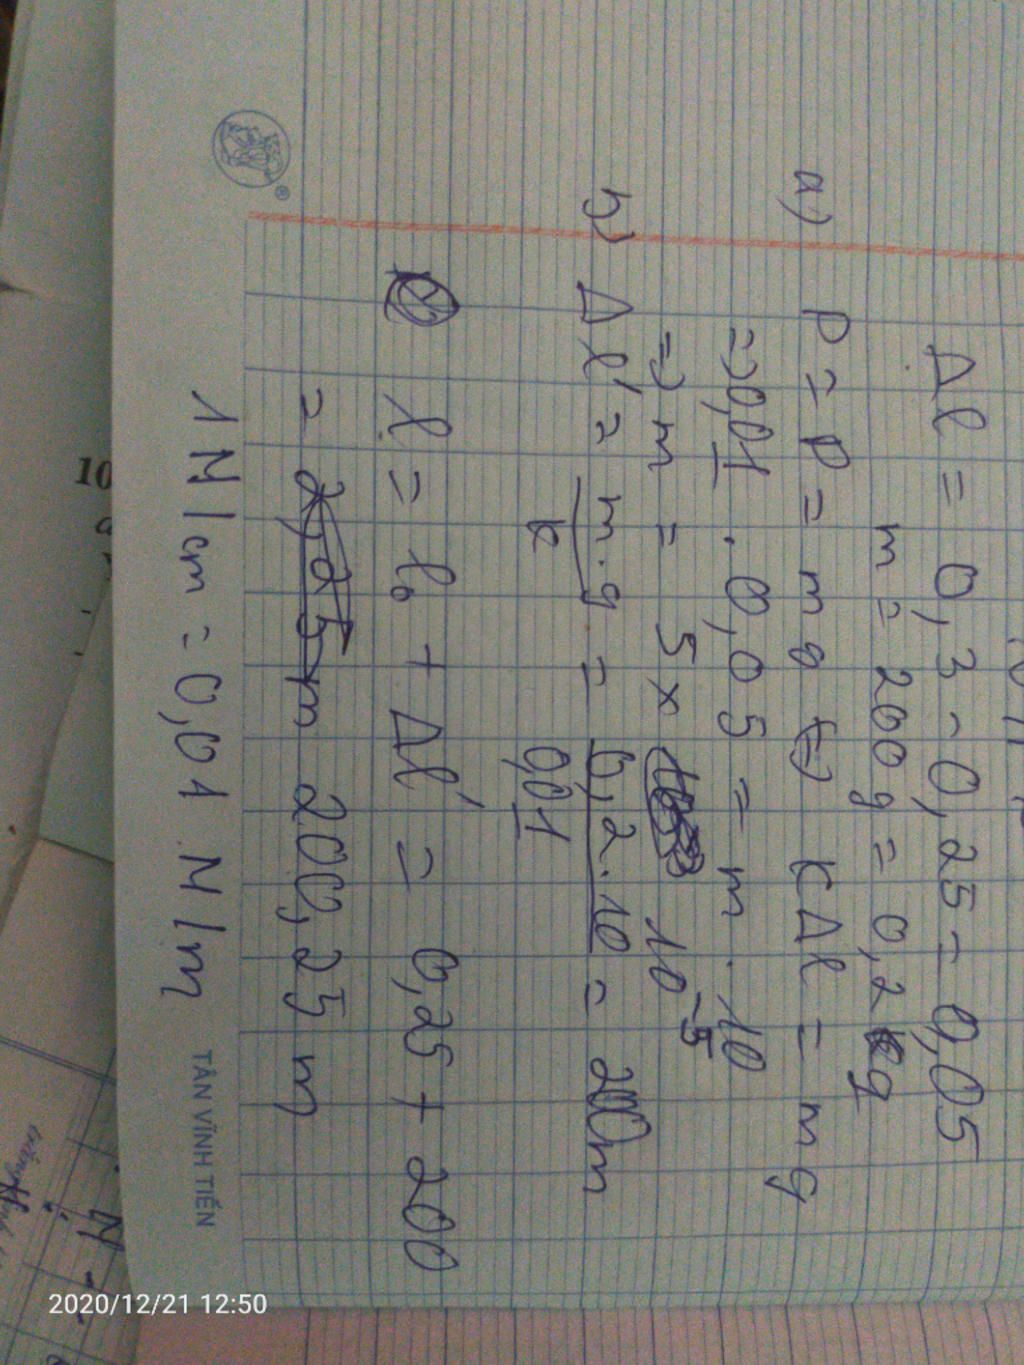 Δl = 0,3 - 0,25 = 0,05
m = 200g = 0,2kg
a) P = P = mg ⇔ kΔl = mg
=> 0,01 . 0,05 = m . 10
=> m = 5 x 10^-5
b) Δl' = m.g / k = 0,2.10 / 0,01 = 200m
l = l₀ + Δl' = 0,25 + 200
= 200,25 m
1N/cm = 0,01 N/m
TÂN VĨNH TIẾN
®
10
2020/12/21 12:50